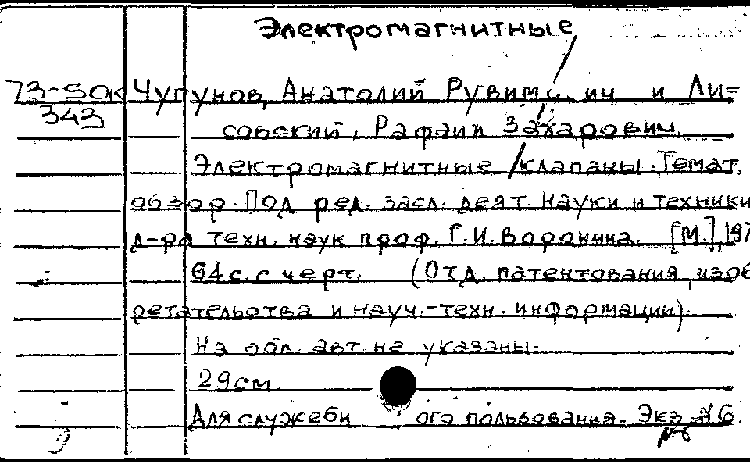 Электромагнитные
73-50к Чупунов, Анатолий Рувимович и Ли=
343
совский, Рафаил Захарович.
Электромагнитные клапаны. Темат.
обзор. Под ред. засл. деят науки и техники
д-ра техн. наук проф. Г.И. Воронина. [М.], 197
64 с. с черт. (Отд. патентования, изоб
ретательства и науч.-техн. информации).
На обл. авт. не указаны.
29см.
Для служебн ого пользования. Экз. №6.